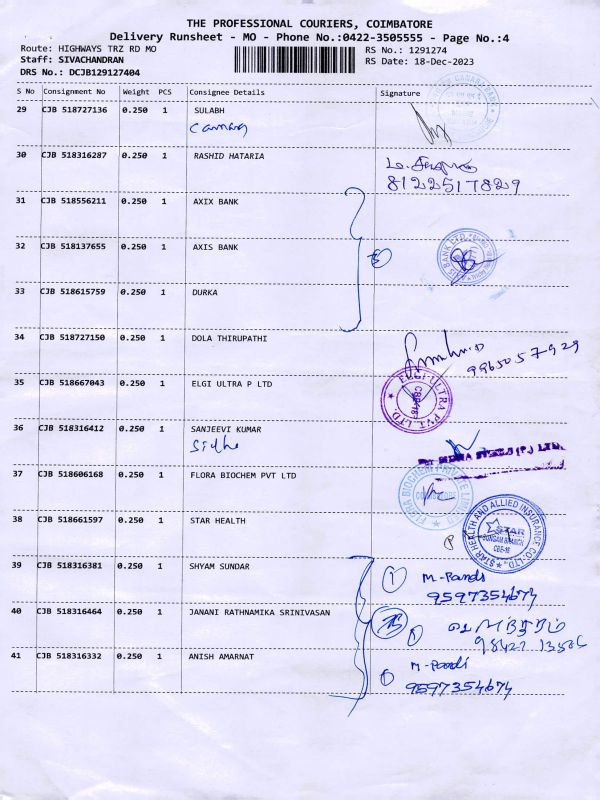 THE PROFESSIONAL COURIERS, COIMBATORE
Delivery Runsheet - MO - Phone No.:0422-3505555 - Page No.:4
Route: HIGHWAYS TRZ RD MO
RS No.: 1291274
Staff: SIVACHANDRAN
RS Date: 18-Dec-2023
DRS No.: DCJB129127404
S No Consignment No Weight PCS Consignee Details Signature
29 CJB 518727136 0.250 1 SULABH
30 CJB 518316287 0.250 1 RASHID HATARIA
8122517829
31 CJB 518556211 0.250 1 AXIX BANK
32 CJB 518137655 0.250 1 AXIS BANK
33 CJB 518615759 0.250 1 DURKA
34 CJB 518727150 0.250 1 DOLA THIRUPATHI
9965057929
35 CJB 518667043 0.250 1 ELGI ULTRA P LTD
ELGI ULTRA PVT. LTD.
CBE-18
36 CJB 518316412 0.250 1 SANJEEVI KUMAR
37 CJB 518606168 0.250 1 FLORA BIOCHEM PVT LTD
FLORA BIOCHEM PRIVATE LIMITED
38 CJB 518661597 0.250 1 STAR HEALTH
STAR HEALTH AND ALLIED INSURANCE CO.LTD.
STAR
SUNGAM BRANCH
CBE-18
39 CJB 518316381 0.250 1 SHYAM SUNDAR
M-Pandi
9597354674
40 CJB 518316464 0.250 1 JANANI RATHNAMIKA SRINIVASAN
41 CJB 518316332 0.250 1 ANISH AMARNAT
M-Pandi
9597354674